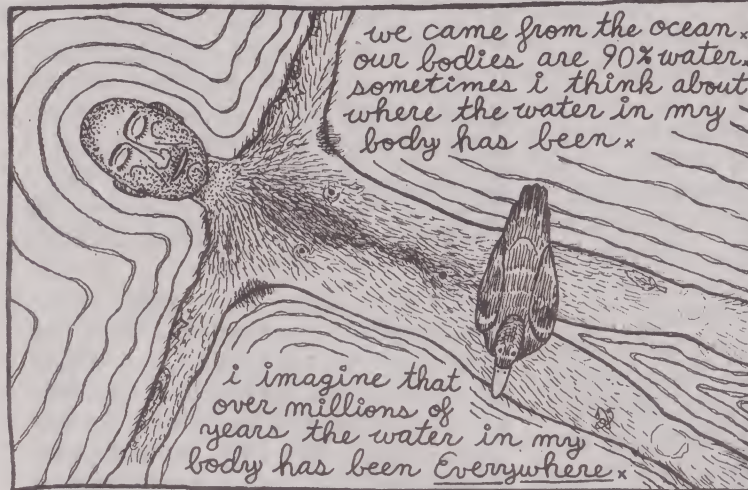 we came from the ocean x
our bodies are 90% water x
sometimes i think about
where the water in my
body has been x
i imagine that
over millions of
years the water in my
body has been Everywhere x